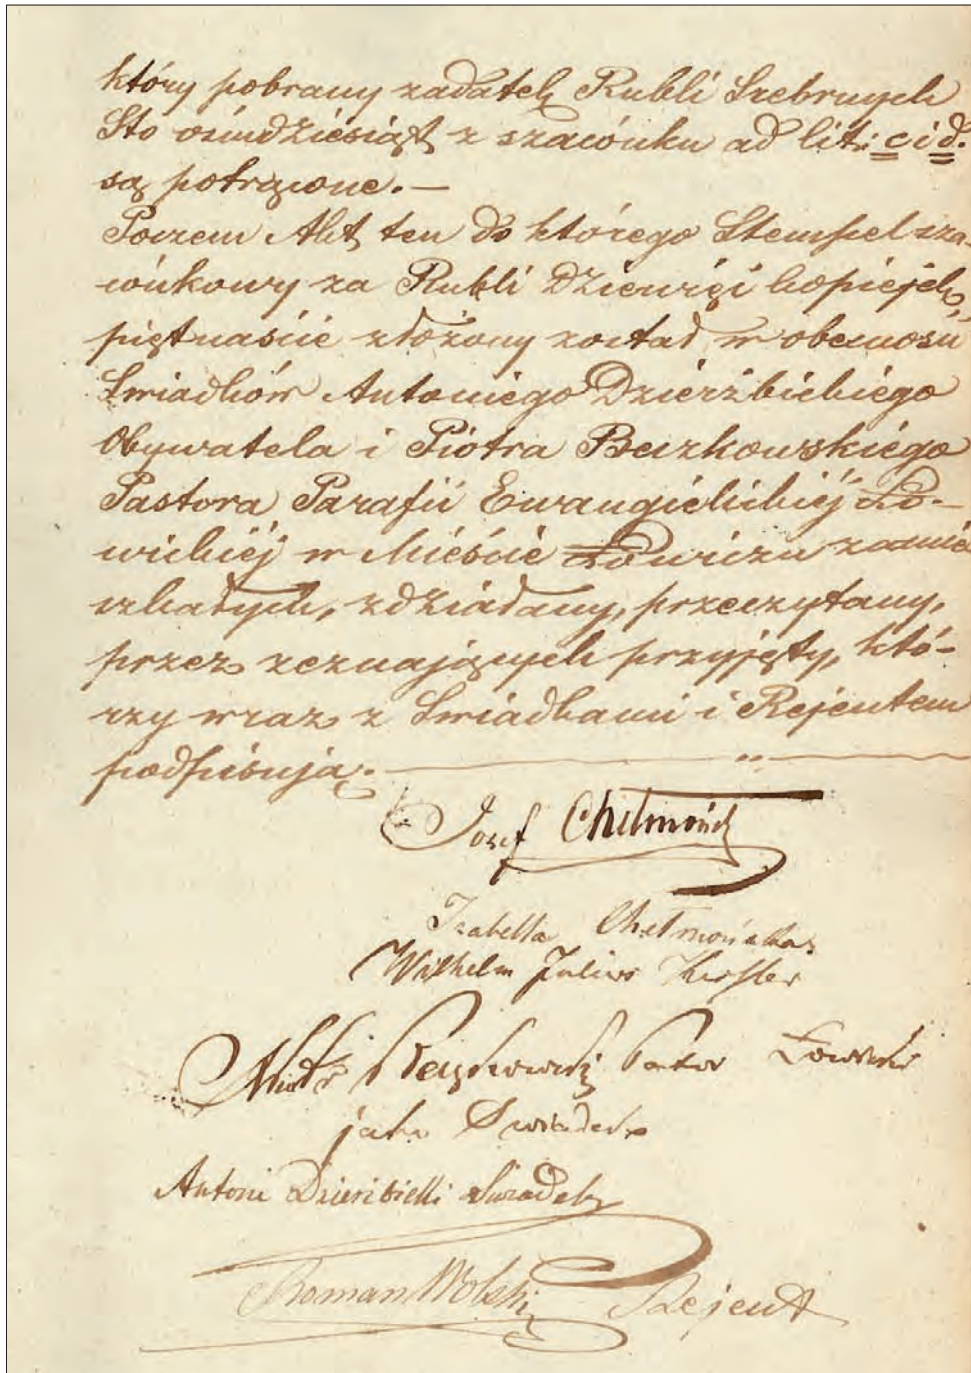 który pobrany zadatek Rubli Srebrnych
Sto ośmdziesiąt z szacónku ad lit: c i d.
są potrącone.—
Poczem Akt ten do którego Stempel sza-
cónkowy za Rubli Dziewięć kopiejek
piętnaście złożony został w obecności
Świadków Antoniego Dzierzbickiego
Obywatela i Piotra Beczkowskiego
Pastora Parafii Ewangielickiéj Ło-
wickiéj w Mieście Łowiczu zamie-
szkałych, zdziałany, przeczytany,
przez zeznających przyjęty, któ-
rzy wraz z Świadkami i Rejentem
podpisują.—
Jozef Chełmoński
Izabella Chełmońska
Wilhelm Julius Kessler
Piotr Beczkowski Pastor Łowicki
jako Swiadek
Antoni Dzierzbicki Swiadek
Roman Wolski Rejent